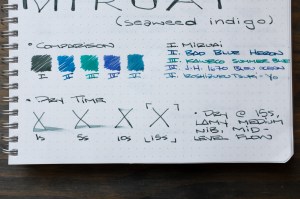 MIRUAI
(seaweed indigo)
• COMPARISON
I II III IV V
I. MIRUAI
II. BAO BLUE HERON
III. KAWECO SUMMER BLUE
IV. J.H. 1670 BLEU OCEAN
V. YOSHIZURU
• DRY TIME
X X X X
1s 5s 10s 15s
• DRY @ 15s,
LAMY MEDIUM
NIB, MID-
LEVEL FLOW